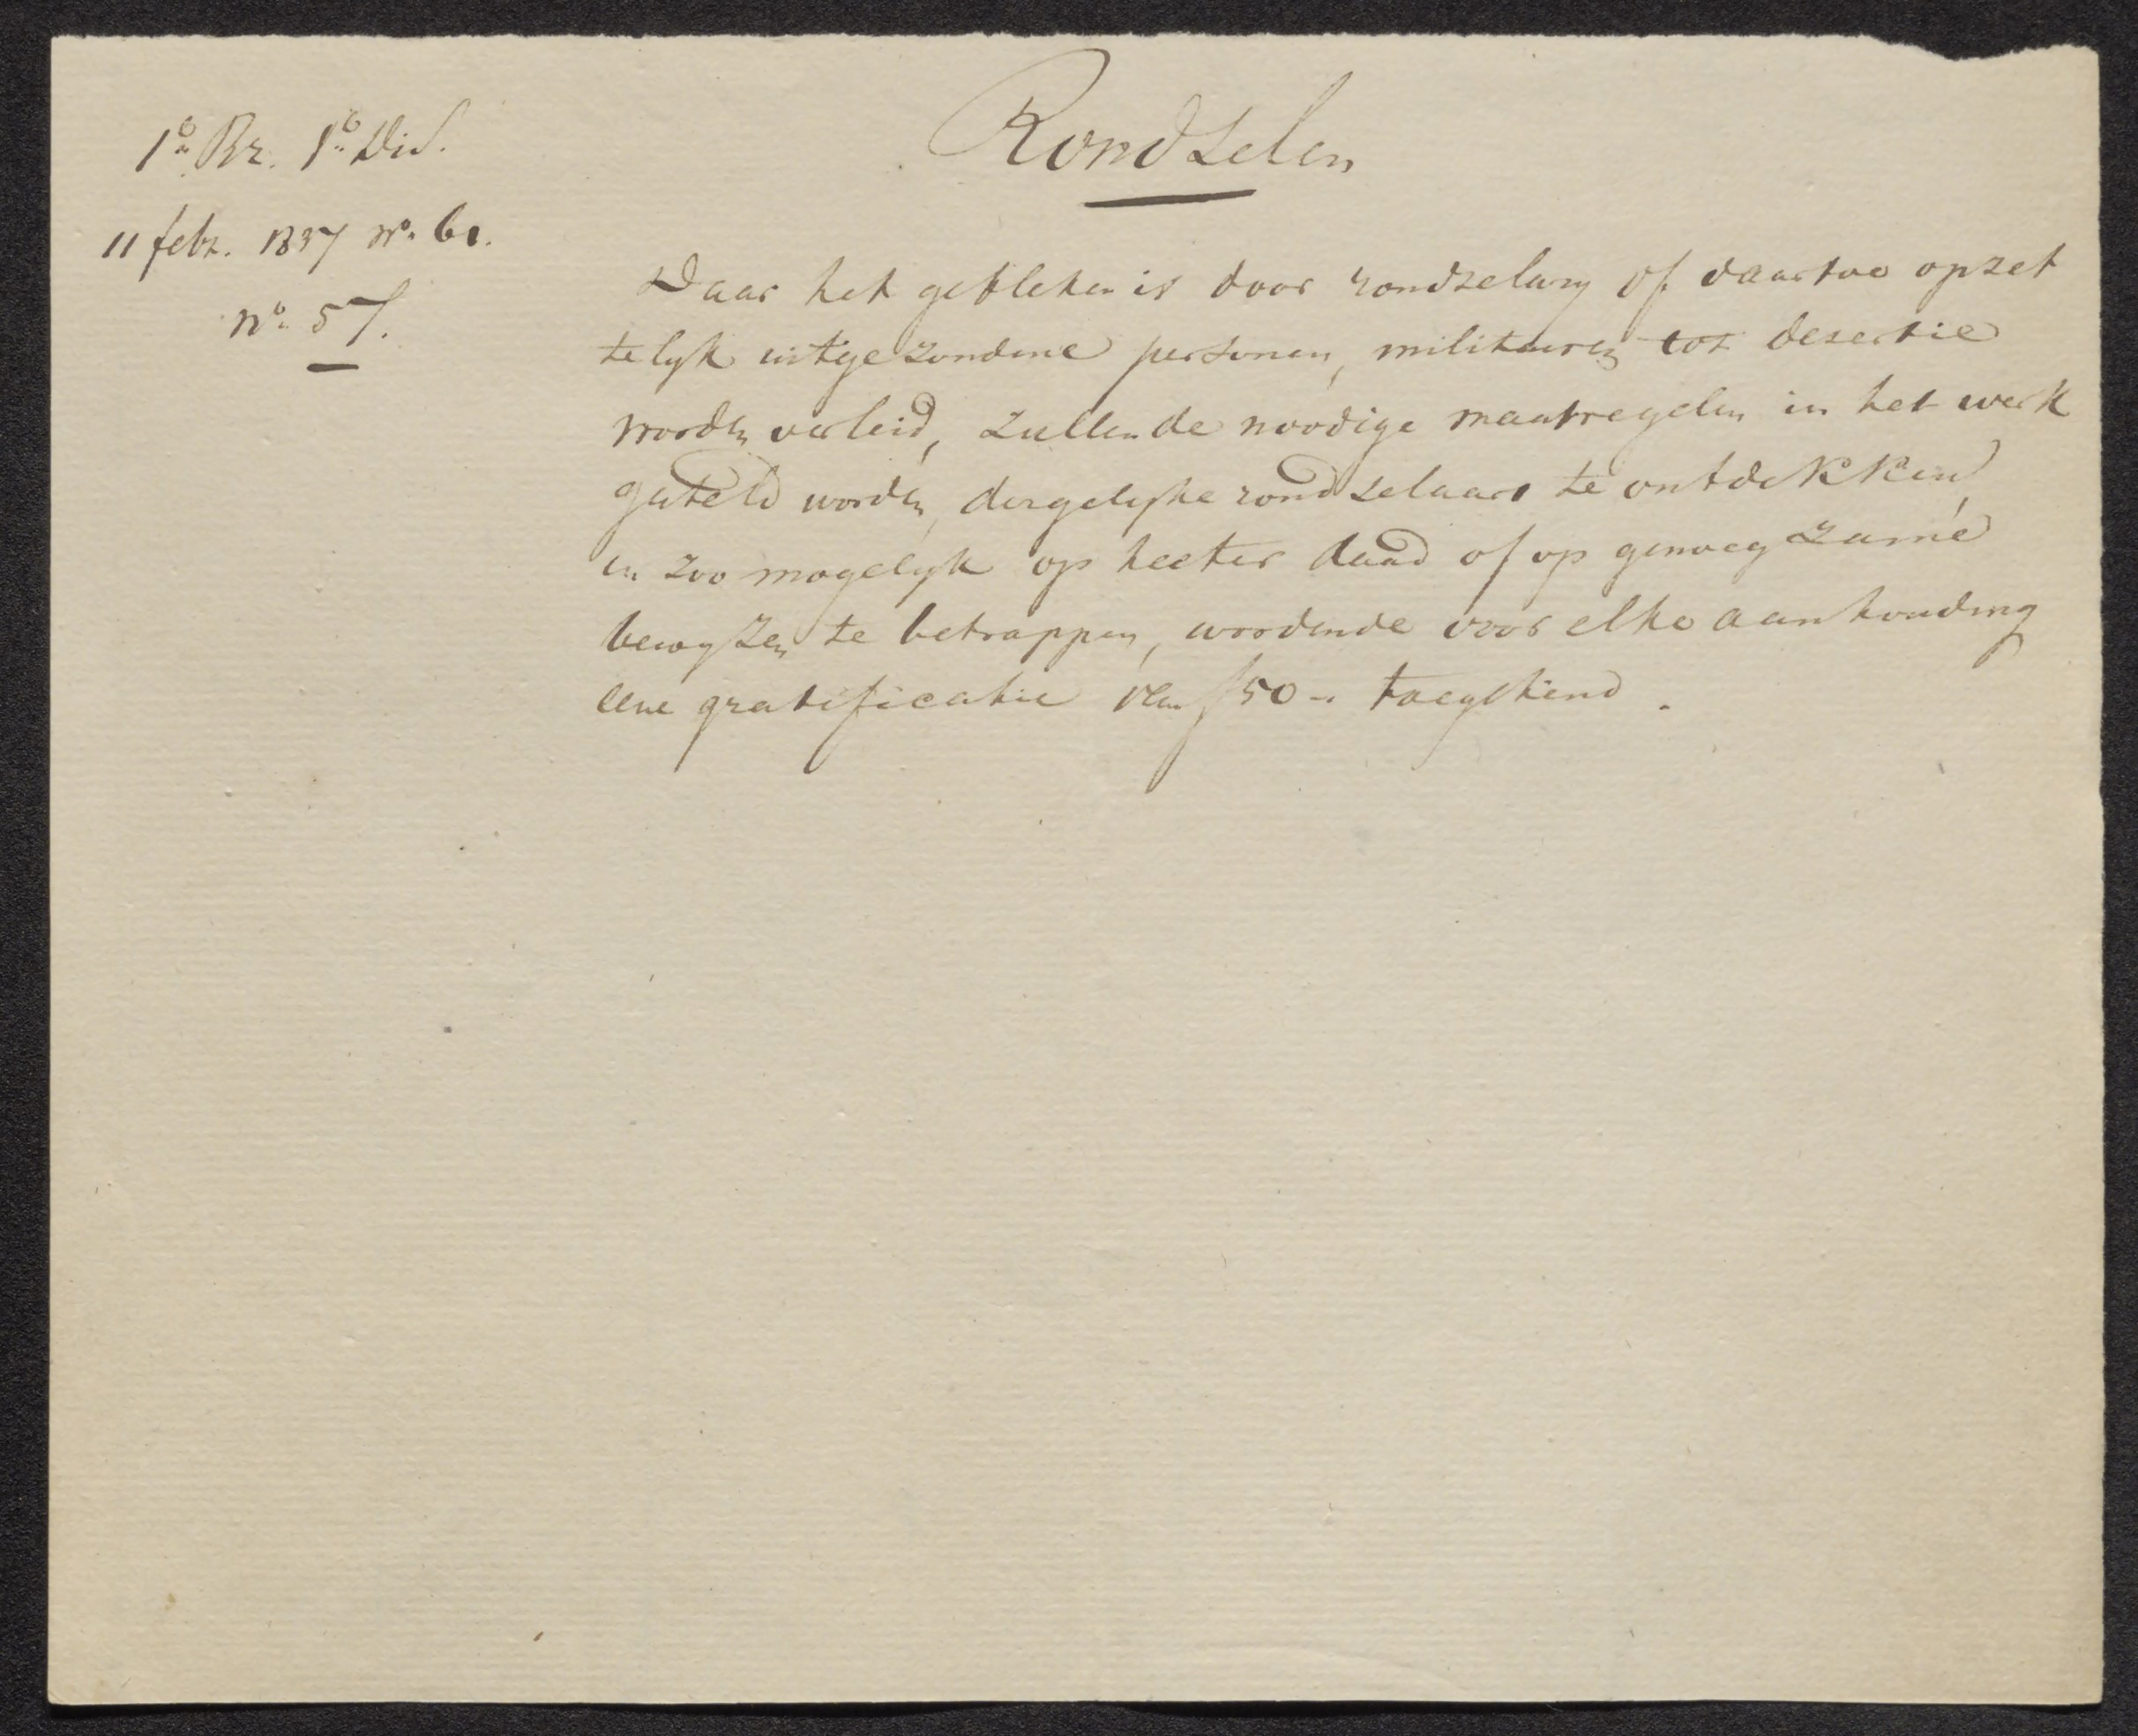 Rondselen
1e Br. 1e Div.
11 febr. 1837 No. 61.
No. 57.
Daar het gebleken is door rondselary of daartoe opzet
telyk uitgezondene personen, militairen tot desertie
worden verleid, zullen de noodige maatregelen in het werk
gesteld worden, dergelyke rondselaars te ontdekken,
en zoo mogelyk op heeter daad of op genoegzame
bewyzen te betrappen, wordende voor elke aanhouding
eene gratificatie van f 50 - toegekend.